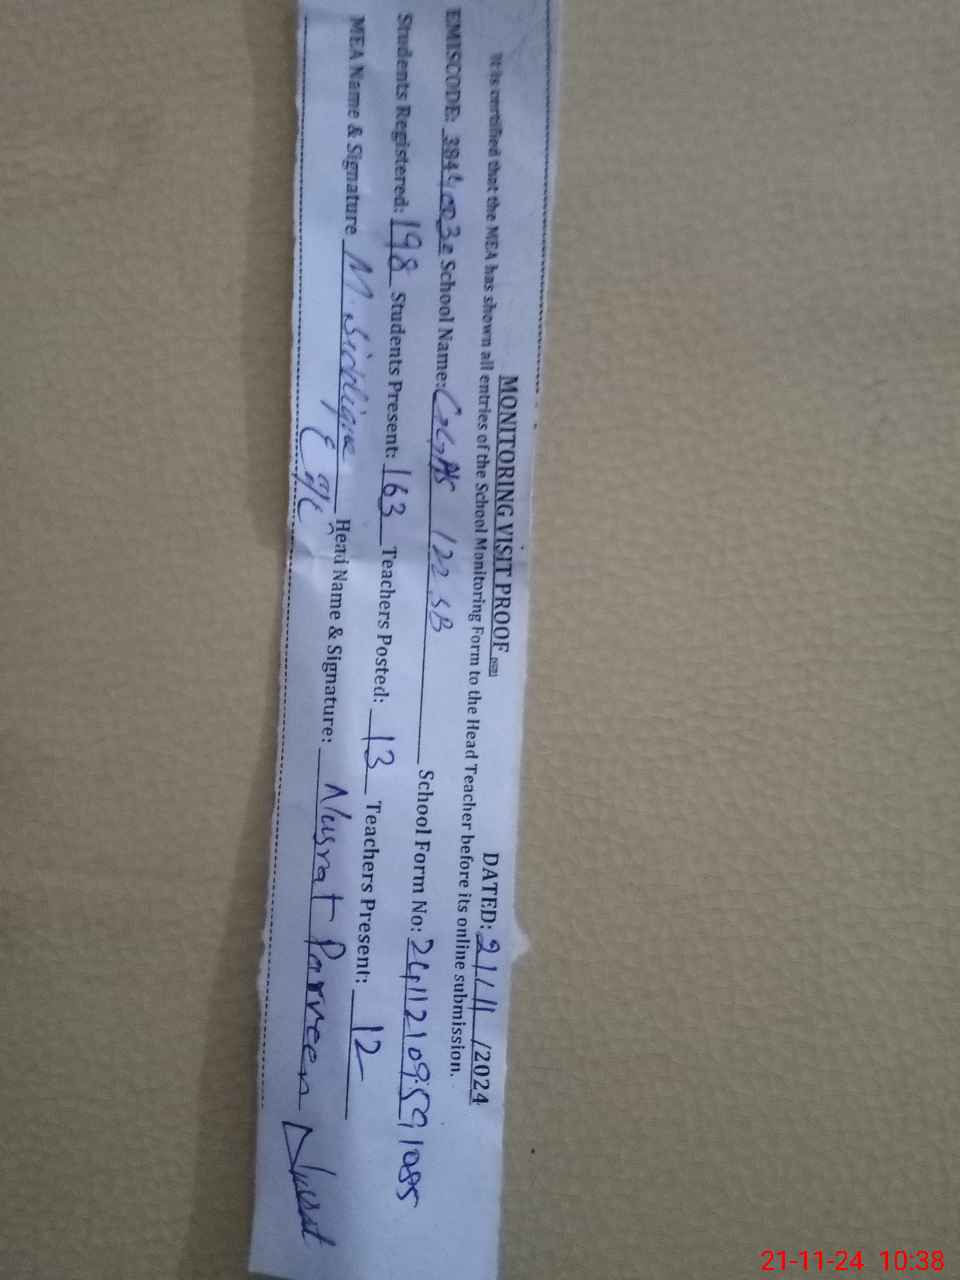 MONITORING VISIT PROOF DATED: 21/11/2024
It is certified that the MEA has shown all entries of the School Monitoring Form to the Head Teacher before its online submission.
EMISCODE: School Name: 122 SB School Form No:
Students Registered: 198 Students Present: 163 Teachers Posted: 13 Teachers Present: 12
MEA Name & Signature M. Head Name & Signature: Nusrat Parveen
21-11-24 10:38